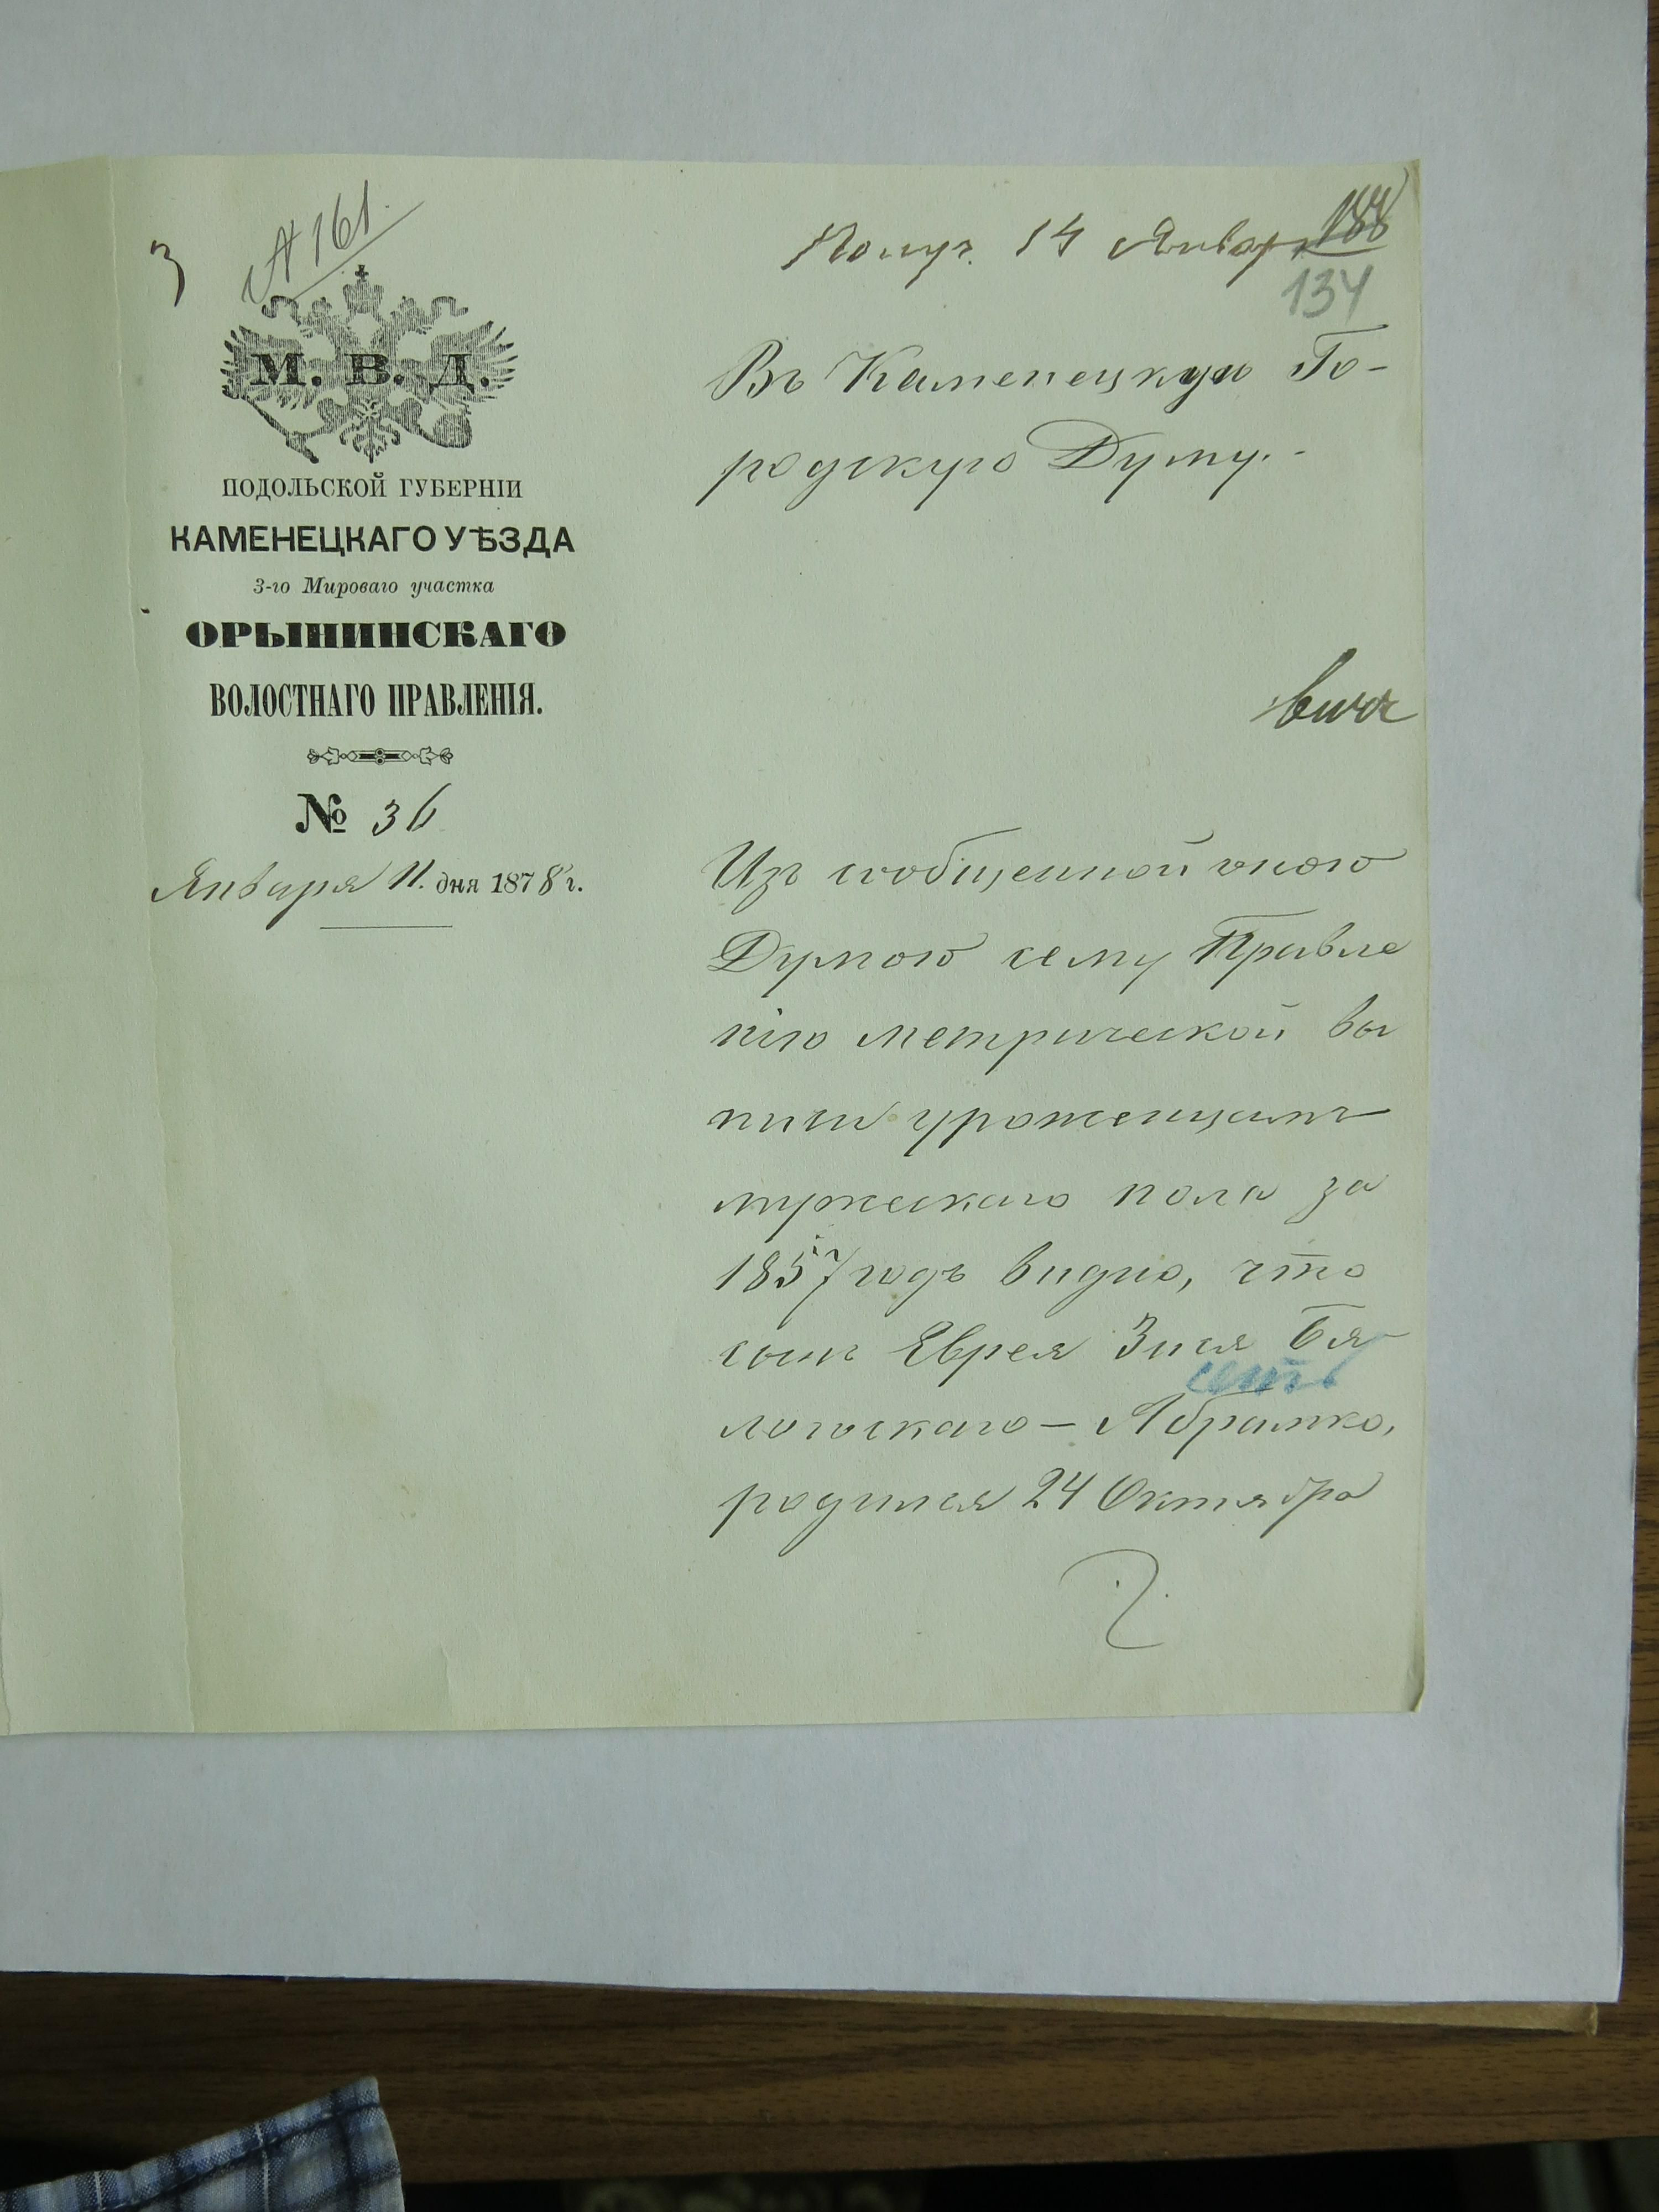 3
№ 161.
Получ. 14 Января
188
134
М. В. Д.
ПОДОЛЬСКОЙ ГУБЕРНІИ
КАМЕНЕЦКАГО УѢЗДА
3-го Мироваго участка
ОРЫНИНСКАГО
ВОЛОСТНАГО ПРАВЛЕНІЯ.
№ 36
Января 11. дня 1878 г.
Въ Каменецкую Го-
родскую Думу.-
Изъ сообщенной оною
Думою сему Правле
нію метрической вы
писи уроженцамъ
мужескаго пола за
1857 годъ видно, что
сынъ Еврея Зися Бя
есть
логскаго — Абрамко,
родился 24 Октября